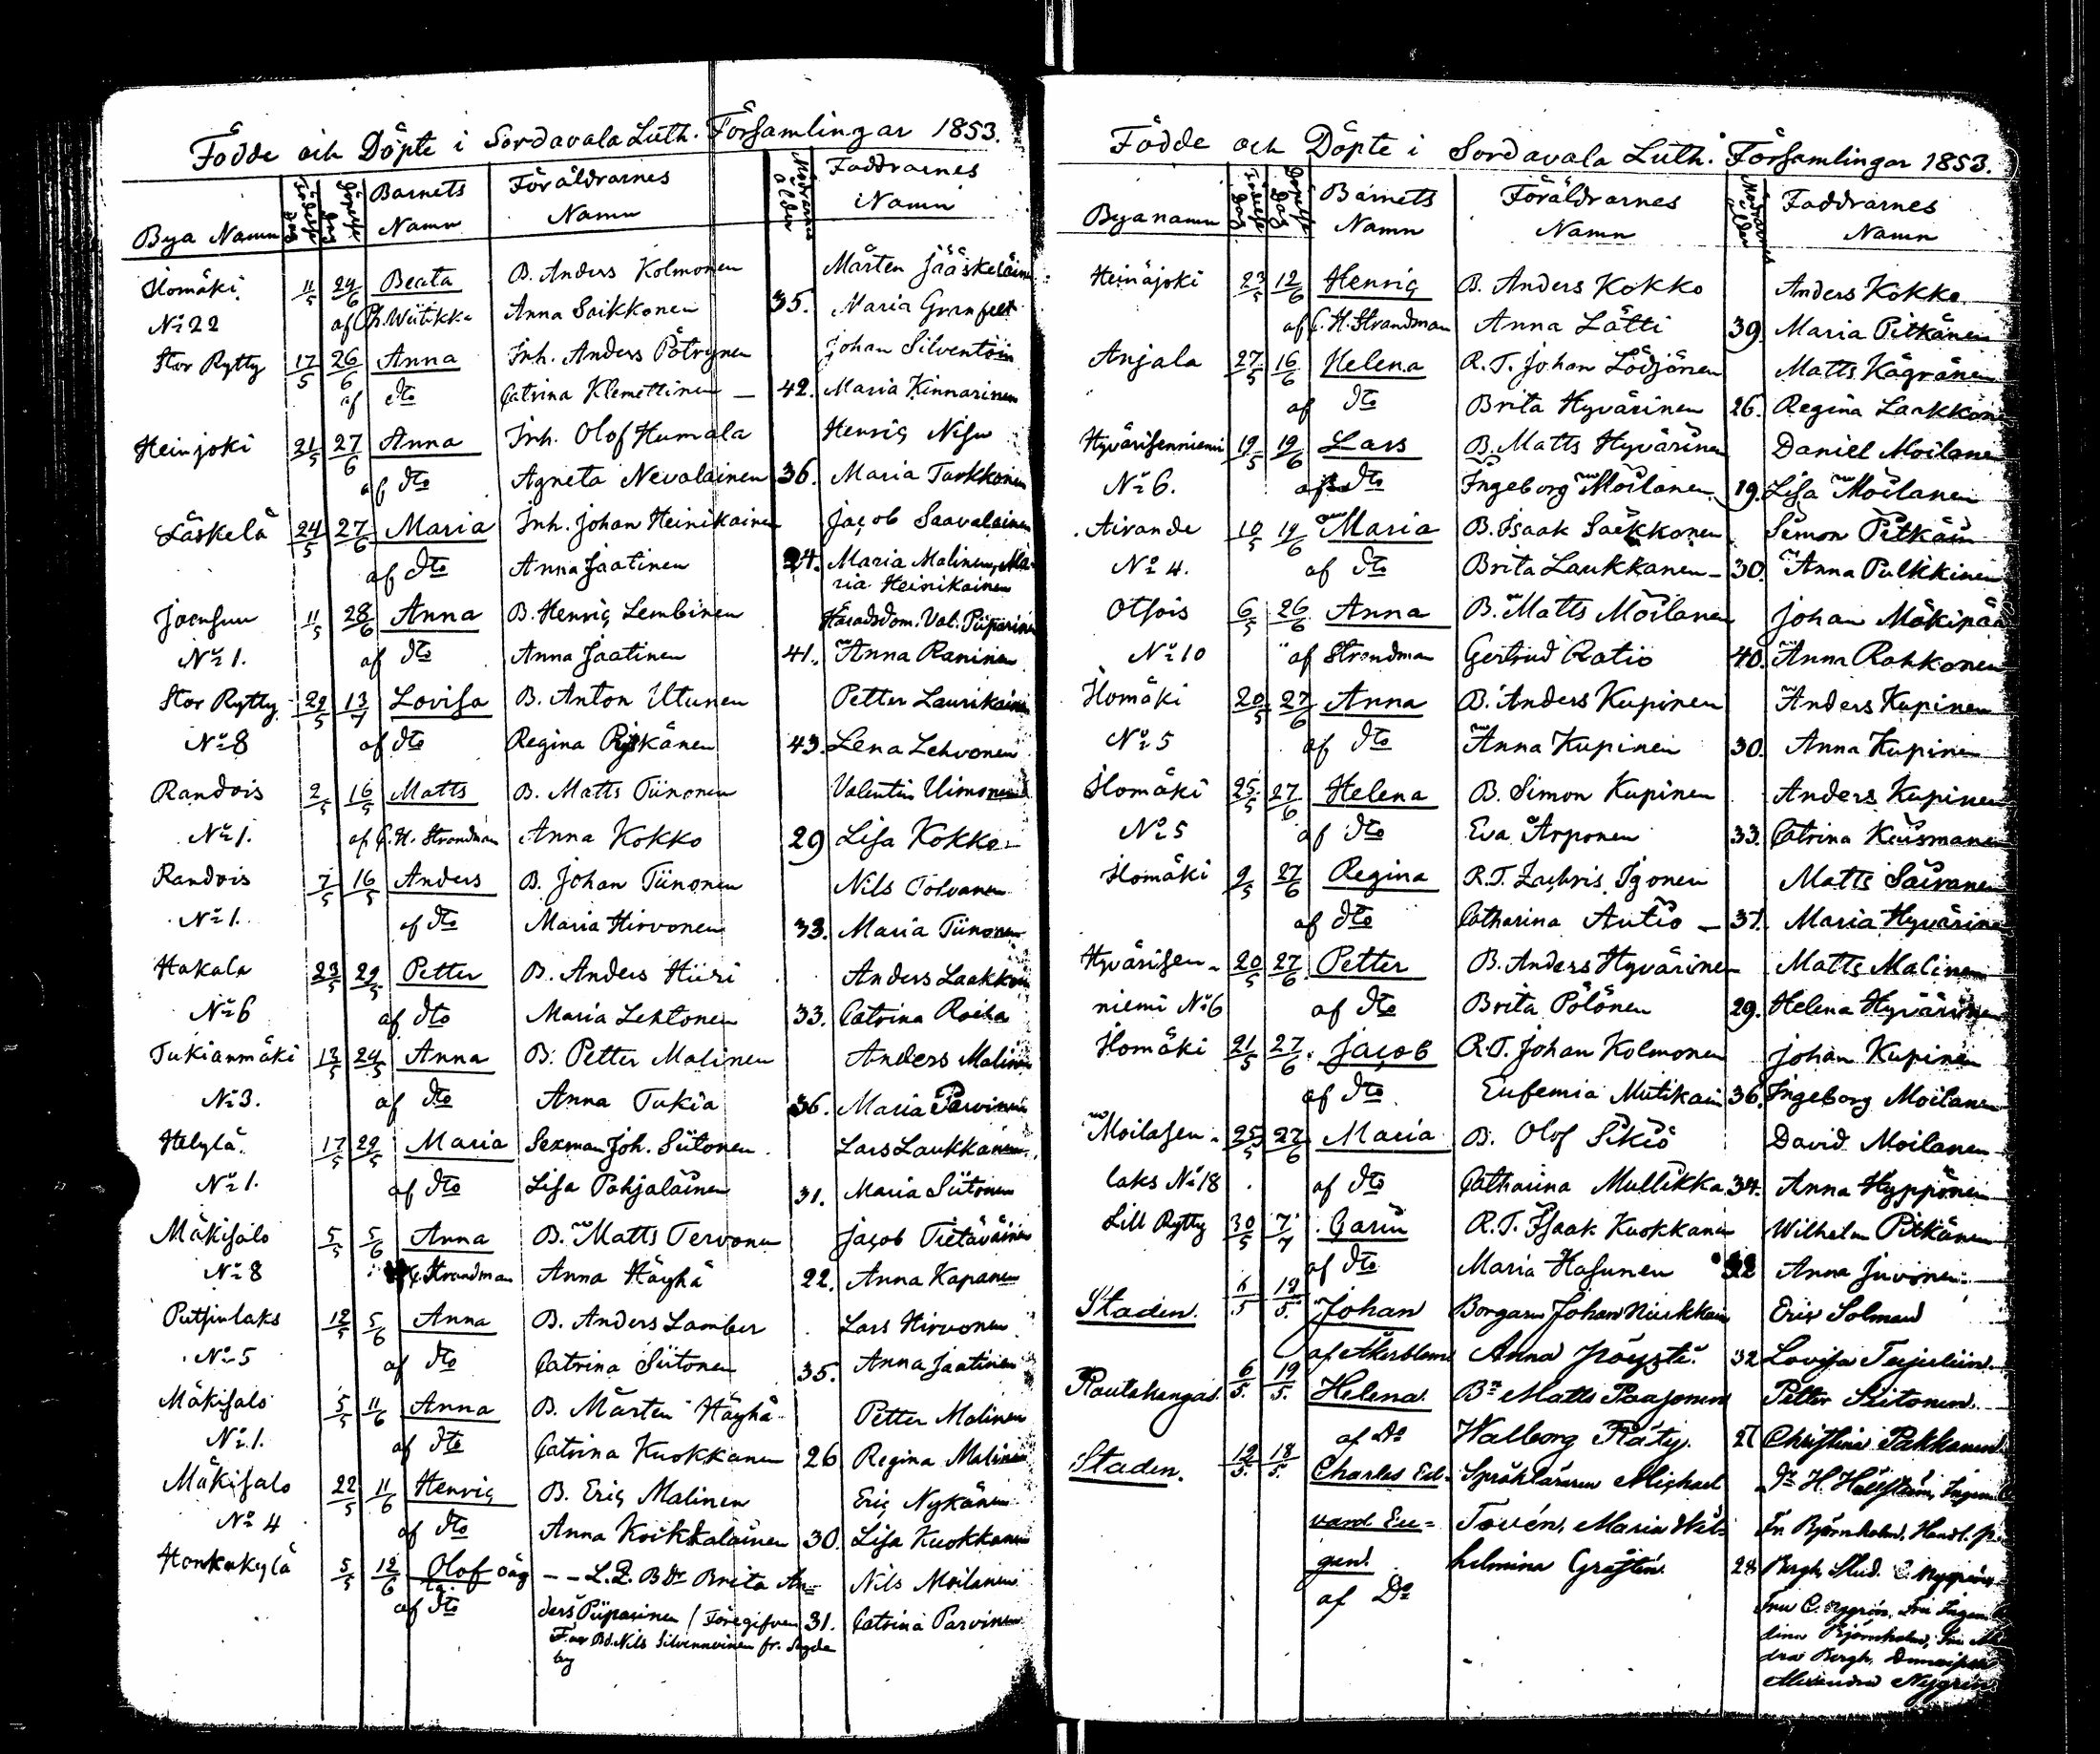 Födde och Döpte i Sordavala Luth. Församlingar 1853.
Bya Namn Födelse Dag Döpelse Dag Barnets Namn Föräldrarnes Namn Modrarnes ålder Faddrarnes Namn
Ilomäki 11/5 24/6 Beata B. Anders Kolmonen Mårten Jääskeläinen
No 22 af Ph. Wiitikka Anna Saikkonen 35. Maria Granfelt
Stor Rytty 17/5 26/6 Anna Inh. Anders Pötrynen Johan Silventoin
af dto Catrina Klemettinen — 42. Maria Kinnarinen
Heinjoki 21/5 27/6 Anna Inh. Olof Humala Henric Nisu
af dto Agneta Nevalainen 36. Maria Turkkonen
Läskelä 24/5 27/6 Maria Inh. Johan Heinikainen Jacob Saavalainen
af dto Anna Jaatinen 24. Maria Malinen, Ma-
ria Heinikainen
Joensuu 11/5 28/6 Anna B. Henric Lembinen Häradsdom. Val. Piiparinen
No 1. af dto Anna Jaatinen 41. Anna Raninen
Stor Rytty 29/5 13/7 Lovisa B. Anton Utunen Petter Laurikainen
No 8 af dto Regina 43. Lena Lehvonen
Randois 2/5 16/5 Matts B. Matts Tiinonen Valentin Uimonen
No 1. af C. H. Strandman Anna Kokko 29 Lisa Kokko
Randois 7/5 16/5 Anders B. Johan Tiinonen Nils Tolvanen
No 1. af dto Maria Hirvonen 33. Maria Tiinonen
Hakala 23/5 29/5 Petter B. Anders Hiiri Anders Laakkon
No 6 af dto Maria Lehtonen 33. Catrina Roiha
Tukianmäki 13/5 24/5 Anna B. Petter Malinen Anders Malinen
No 3. af dto Anna Tukia 36. Maria Parvinen
Helylä 17/5 29/5 Maria Sexman Joh. Siitonen Lars Laukkanen
No 1. af dto Lisa Pohjalainen 31. Maria Siitonen
Mäkisalo 5/5 5/6 Anna B. Matts Tervonen Jacob Tietäväinen
No 8 C. Strandman Anna Häyhä 22. Anna Kapanen
Putsinlaks 12/5 5/6 Anna B. Anders Lamber Lars Hirvonen
No 5 af dto Catrina Siitonen 35. Anna Jaatinen
Mäkisalo 5/5 11/6 Anna B. Mårten Häyhä Petter Malinen
No 1. af dto Catrina Kuokkanen 26 Regina Malinen
Mäkisalo 22/5 11/6 Henric B. Eric Malinen Eric Nykänen
No 4 af dto Anna Koikkalainen 30. Lisa Kuokkanen
Honkakylä 5/5 12/6 Olof oäg — — L. Q. B Dr Brita An= Nils Moilanen
af dto ders Piiparinen / Föregifven 31. Catrina Parvinen
Far Bd. Nils Silvennoinen fr.
by
Födde och Döpte i Sordavala Luth. Församlingar 1853.
Bya namn Födelse Dag Döpelse Dag Barnets Namn Föräldrarnes Namn Modrarnes ålder Faddrarnes Namn
Heinäjoki 23/5 12/6 Henric B. Anders Kokko Anders Kokko
af C. H. Strandman Anna Lätti 39. Maria Pitkänen
Anjala 27/5 16/6 Helena R. T. Johan Lödjönen Matts Kägränen
af dto Brita Hyvärinen 26. Regina Laakkon
Hyvärisenniemi 19/5 19/6 Lars B. Matts Hyvärinen Daniel Moilanen
No 6. af dto Ingeborg Moilanen 19. Lisa Moilanen
Airanne 10/5 19/6 Maria B. Isaak Saikkonen Simon Pitkäin
No 4. af dto Brita Laukkanen — 30. Anna Pulkkinen
Otsois 6/5 26/6 Anna B. Matts Moilanen Johan Mäkipää
No 10 af Strandman Gertrud Ratio 40. Anna Rahkonen
Ilomäki 20/5 27/6 Anna B. Anders Kupinen Anders Kupinen
No 5 af dto Anna Kupinen 30. Anna Kupinen
Ilomäki 25/5 27/6 Helena B. Simon Kupinen Anders Kupinen
No 5 af dto Eva Arponen 33. Catrina Kiusmanen
Ilomäki 9/5 27/6 Regina R. T. Zachris Igonen Matts Sairanen
af dto Catharina Autio — 37. Maria Hyvärinen
Hyvärisen- 20/5 27/6 Petter B. Anders Hyvärinen Matts Malinen
niemi No 6 af dto Brita Pölönen 29. Helena Hyvärinen
Ilomäki 21/5 27/6 Jacob R. T. Johan Kolmonen Johan Kupinen
af dto Eufemia Mutikain 36. Ingeborg Moilanen
Moilasen- 25/5 27/6 Maria B. Olof Sikiö David Moilanen
laks No 18 af dto Catharina Mullikka 34. Anna Hyppönen
Lill Rytty 30/5 7/7 Carin R. T. Isaak Kuokkanen Wilhelm Pitkänen
af dto Maria Hasunen 32 Anna Juvonen
Staden. 6/5 19/5 Johan Borgaren Johan Eric Solman
af Åkerblom Anna Pöysti 32 Lovisa
Rautakangas 6/5 19/5 Helena Bn Matts Paajonen Petter Siitonen
af Do Walborg Räty 27 Christina Pakkanen
Staden. 12/5 18/5 Charles Ed- Språkläraren Michael Dr H. Hällström, Ingen
vard Eu= Tovén, Maria Wil- Fr Björnholm, Handl.
gen helmina Gråstén 28 Bergh, Stud. C. Nygrén
af Do Fru C. Nygrén, Fru Ingen
lina Björnholm, Fru
dra Bergh,
Alexandra Nygrén